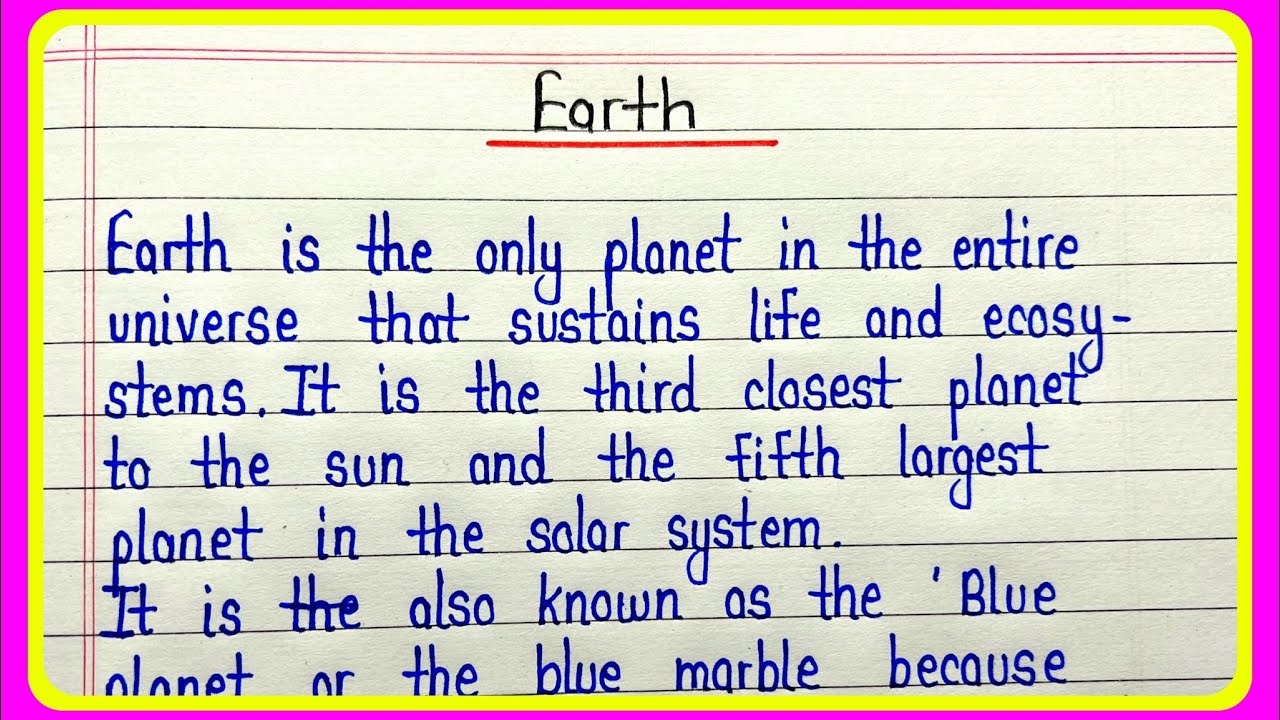 Earth
Earth is the only planet in the entire
universe that sustains life and ecosy-
stems. It is the third closest planet
to the sun and the fifth largest
planet in the solar system.
It is the also known as the 'Blue
planet or the blue marble because